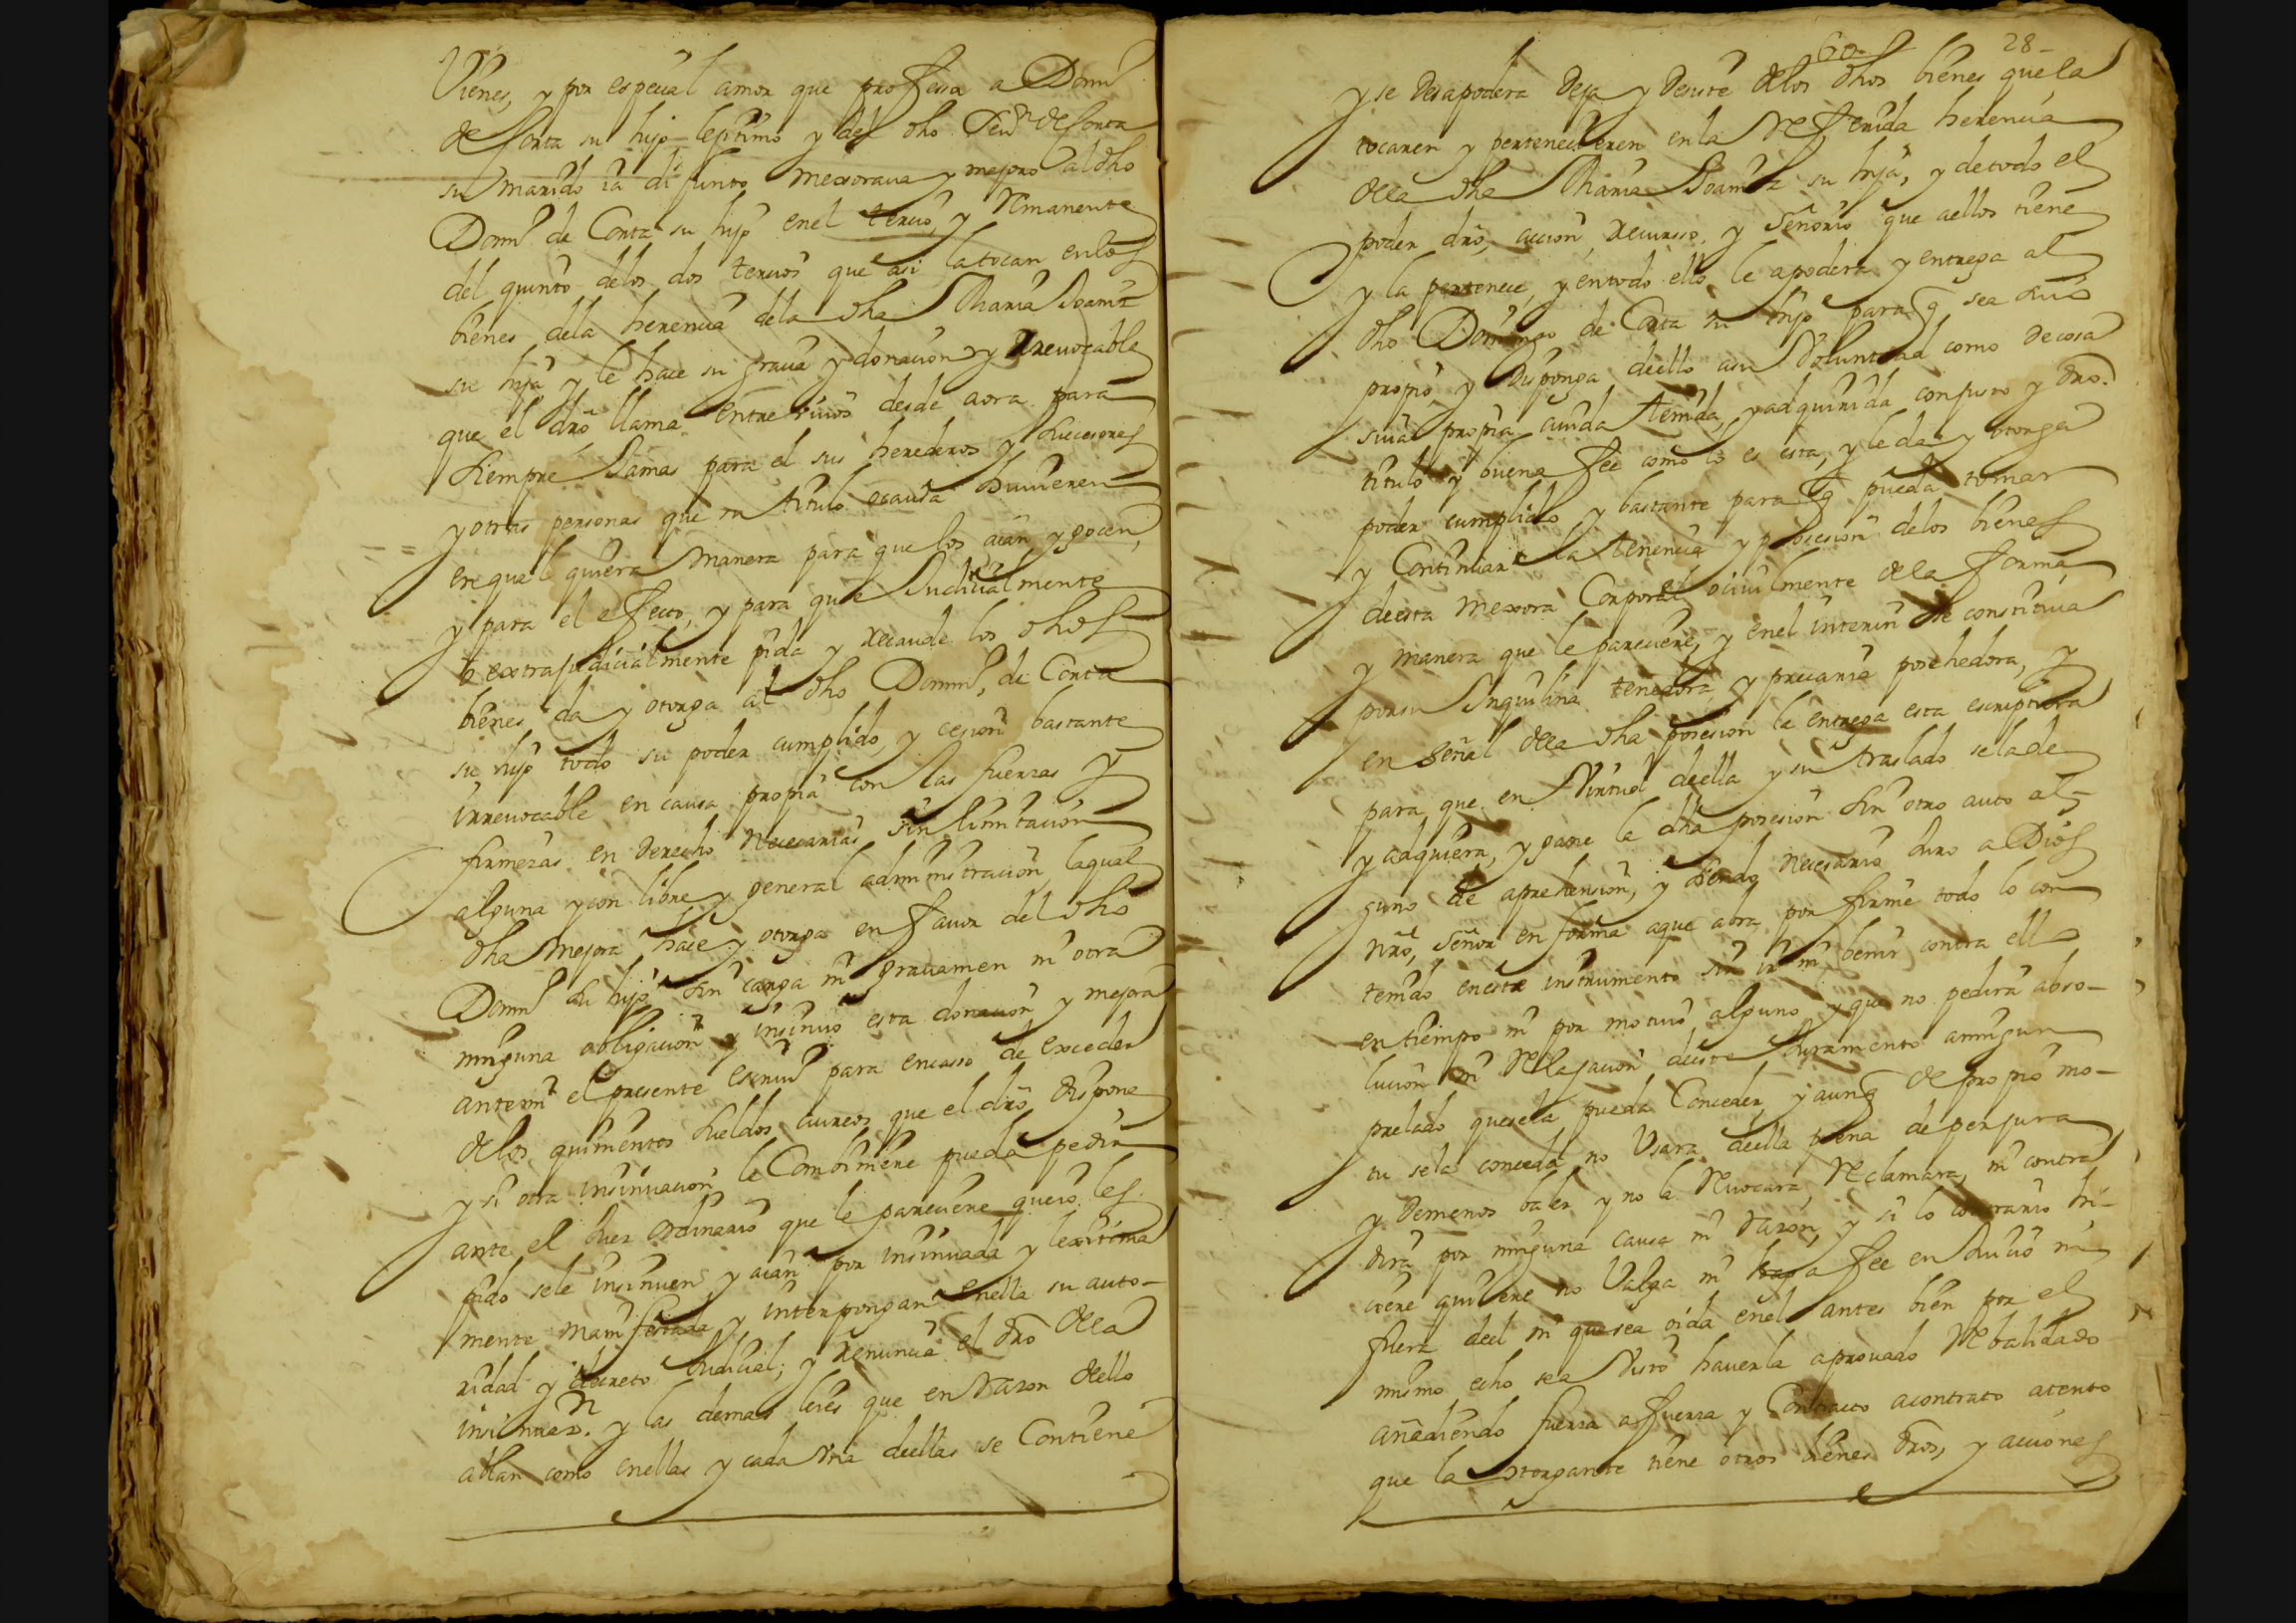 Vienes, y por especial amor que professa a Domⁿ
de Conta su hijo lexitimo y del dho de Conta
su Marido ia difunto Mexoraua y mejoro al dho
Domⁿ de Conta su hijo en el tercio, y Remanente
del quinto delos dos tercios que asi latocan enlos
bienes dela herencia dela dha Maria Doamiz
su hija y le hace su gracia y donacion y Yrreuocable
que el dro llama entre viuos desde aora para
Siempre Jamas para el sus herederos y subcesores
y otras personas que su titulo ocausa huuieren
en qual quiera Manera para que los aian y gocen,
y para el efecto, y para que Judicialmente
o extrajudicialmente pida y recaude los dhos
bienes da y otorga al dho Domⁿ, de Conta
su hijo todo su poder cumplido, y cesion bastante
irreuocable en causa propia con las fuerzas y
firmezas en derecho Necesarias sin limitacion
alguna y con libre y general administracion, laqual
dha Mejora hace y otorga en fauor del dho
Domⁿ su hijo sin carga ni grauamen ni otra
ninguna obligacion y insinuo esta donacion y mejora
antemi el presente escriuⁿ para encasso de exceder
delos quinientos sueldos aureos que el dro dispone
y si otra insinuacion le Combiniere pueda pedir
ante el Juez ordinario que le pareciere quesoles
pido sele insinuen y aian por insinuada y lexitima
mente manifestada y interpongan enella su auto-
ridad y decreto Judicial; y renuncia el dro dela
insinuazⁿ. y las demas leies que en Razon dello
ablan como enellas y cada Vna deellas se Contiene
60 28-
y se desapodera deja y desiste delos dhos bienes que la
tocaren y pertenecieren enla Referida herencia
dela dha Maria Doamiz su hija, y detodo el
poder dro, accion, recursso, y señorio que aellos tiene
y la pertenece, y entodo ello le apodera y entrega al
dho Domingo de Conta su hijo para q̃ sea suio
propio y disponga deello asu Voluntad como decosa
suia propia auida tenida, y adquirida conjusto y dro.
titulo y buena fee como lo es esta, y le da y otorga
poder cumplido y bastante para q̃ pueda tomar
y Continuar la tenencia y posesion delos bienes
deesta Mexora Corporal ociuilmente dela forma
y manera que le pareciere, y enel interin se constituia
porsu Inquilina tenedora y precaria posehedora, y
en señal dela dha posesion le entrega esta escriptura
para que en Virtud deella y su traslado selade
y adquiera, y gane la dha posesion sin otro auto al-
guno de aprehension, y siendo Necesario Juro a Dios
nro, señor en forma aque abra por firme todo lo con
tenido eneste instrumento sin ir ni benir contra ello
entiempo ni por motiuo alguno y que no pedira abso-
lucion ni Relajacion deeste Juramento aningun
prelado quesela pueda Conceder, y aunq̃ de propio mo-
tu sela conceda no Vsara deella pena deperjura
y demenos baler y no la Reuocara, Reclamara, ni contra
dira por ninguna causa ni razon, y si lo contrario hi-
ciere quiere no Valga ni haga fee en Juicio ni
fuera deel ni que sea oida enel antes bien por el
mismo echo sea Visto hauerla aprouado Rebalidado
añediendo fuerza afuerza y Contracto acontrato atento
que la otorgante tiene otros bienes dros, y acciones